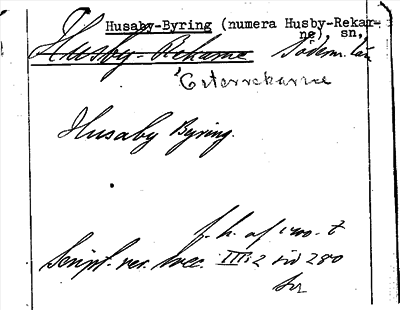 Husaby-Byring (numera Husby-Rekar-
ne) sn,
Husby-Rekarne Söderm. län
Österrekarne
Husaby Byring.
f. h. af 1400-t
Script. rer. svec. III:2 sid 280